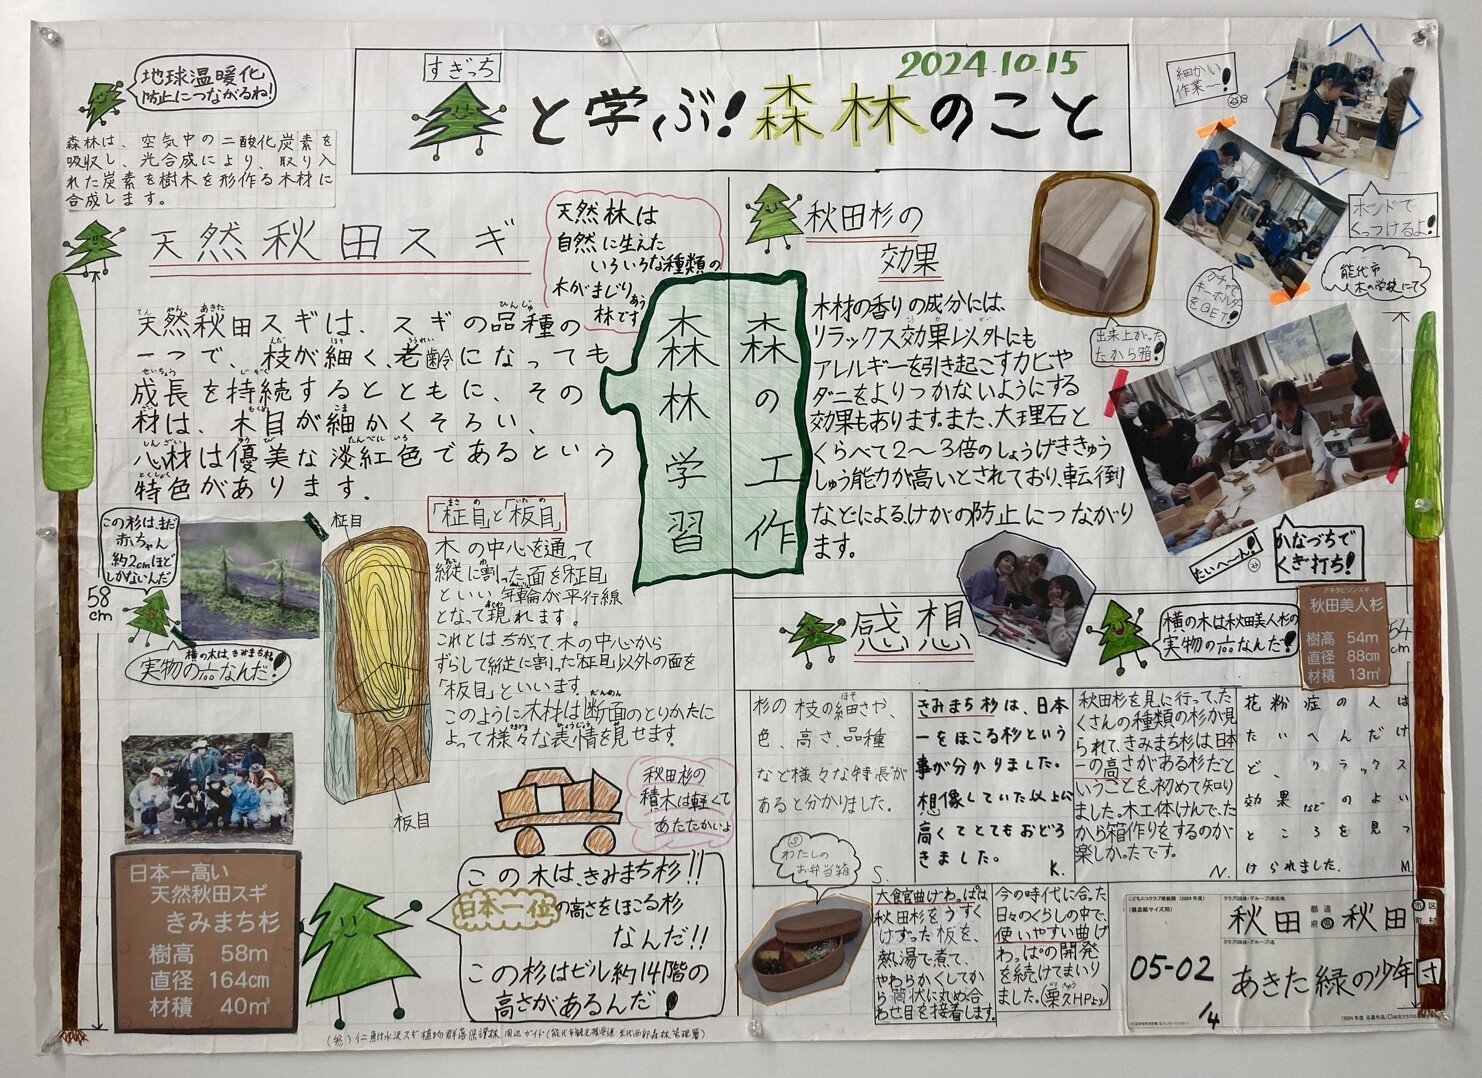 2024.10.15
すぎっち
と学ぶ!森林のこと
地球温暖化
防止につながるね!
森林は、空気中の二酸化炭素を
吸収し、光合成により、取り入
れた炭素を樹木を形作る木材に
合成します。
天然秋田スギ
天然林は
自然に生えた
いろいろな種類の
木がまじりあう
林です
天然秋田スギは、スギの品種の
一つで、枝が細く、老齢になっても
成長を持続するとともに、その
材は、木目が細かくそろい、
心材は優美な淡紅色であるという
特色があります。
この杉は、まだ
赤ちゃん
約2cmほど
しかないんだ
58
cm
横の木はきみまち杉
実物の
なんだ!
柾目
「柾目」と「板目」
木の中心を通って
縦に割った面を「柾目」
といい年輪が平行線
となって現れます。
これとはちがて、木の中心から
ずらして縦に割った「柾目」以外の面を
「板目」といいます。
このように木材は断面のとりかたに
よって様々な表情を見せます。
板目
秋田杉の
積木は軽くて
あたたかいよ
日本一高い
天然秋田スギ
きみまち杉
樹高 58m
直径 164cm
材積 40m³
この木は、きみまち杉!!
日本一位の高さをほこる杉
なんだ!!
この杉はビル約14階の
高さがあるんだ!
森林学習
森の工作
秋田杉の
効果
木材の香りの成分には、
リラックス効果以外にも
アレルギーを引き起こすカビや
ダニをよりつかないようにする
効果もあります。また、大理石と
くらべて2〜3倍のしょうげききゅう
しゅう能力が高いとされており、転倒
などによる、けがの防止につながり
ます。
細かい
作業〜!
ボンドで
くっつけるよ!
能代市
木の学校にて
ガチャで
キーホルダー
をGET!
出来上がった
たから箱!
たいへーん!
かなづちで
くぎ打ち!
感想
横の木は秋田美人杉の
実物の
なんだ!
アキタビジンスギ
秋田美人杉
樹高 54m
直径 88cm
材積 13m³
54
cm
杉の枝の細さや、
色、高さ、品種
など様々な特長が
あると分かりました。
S.
きみまち杉は、日本
一をほこる杉という
事が分かりました。
想像していた以上に
高くてとてもおどろ
きました。
K.
秋田杉を見に行って、た
くさんの種類の杉が見
られて、きみまち杉は日本
一の高さがある杉だと
いうことを、初めて知り
ました。木工体けんで、た
から箱作りをするのが
楽しかったです。
N.
花粉症の人は
たいへんだけ
ど、リラックス
効果などのよい
ところを見つ
けられました。
M.
わたしの
お弁当箱
大館曲げわっぱは
秋田杉をうすく
けずった板を、
熱い湯で煮て、
やわらかくしてか
ら筒状に丸め合
わせ目を接着します。
今の時代に合った
日々のくらしの中で、
使いやすい曲げ
わっぱの開発
を続けてまいり
ました。(栗久HPより)
こどもエコクラブ壁新聞 (2024年度)
(模造紙サイズ用)
05-02
/4
クラブ(団体・グループ)所在地
秋田 都道府県 秋田 市区町村
クラブ(団体・グループ)名
あきた緑の少年